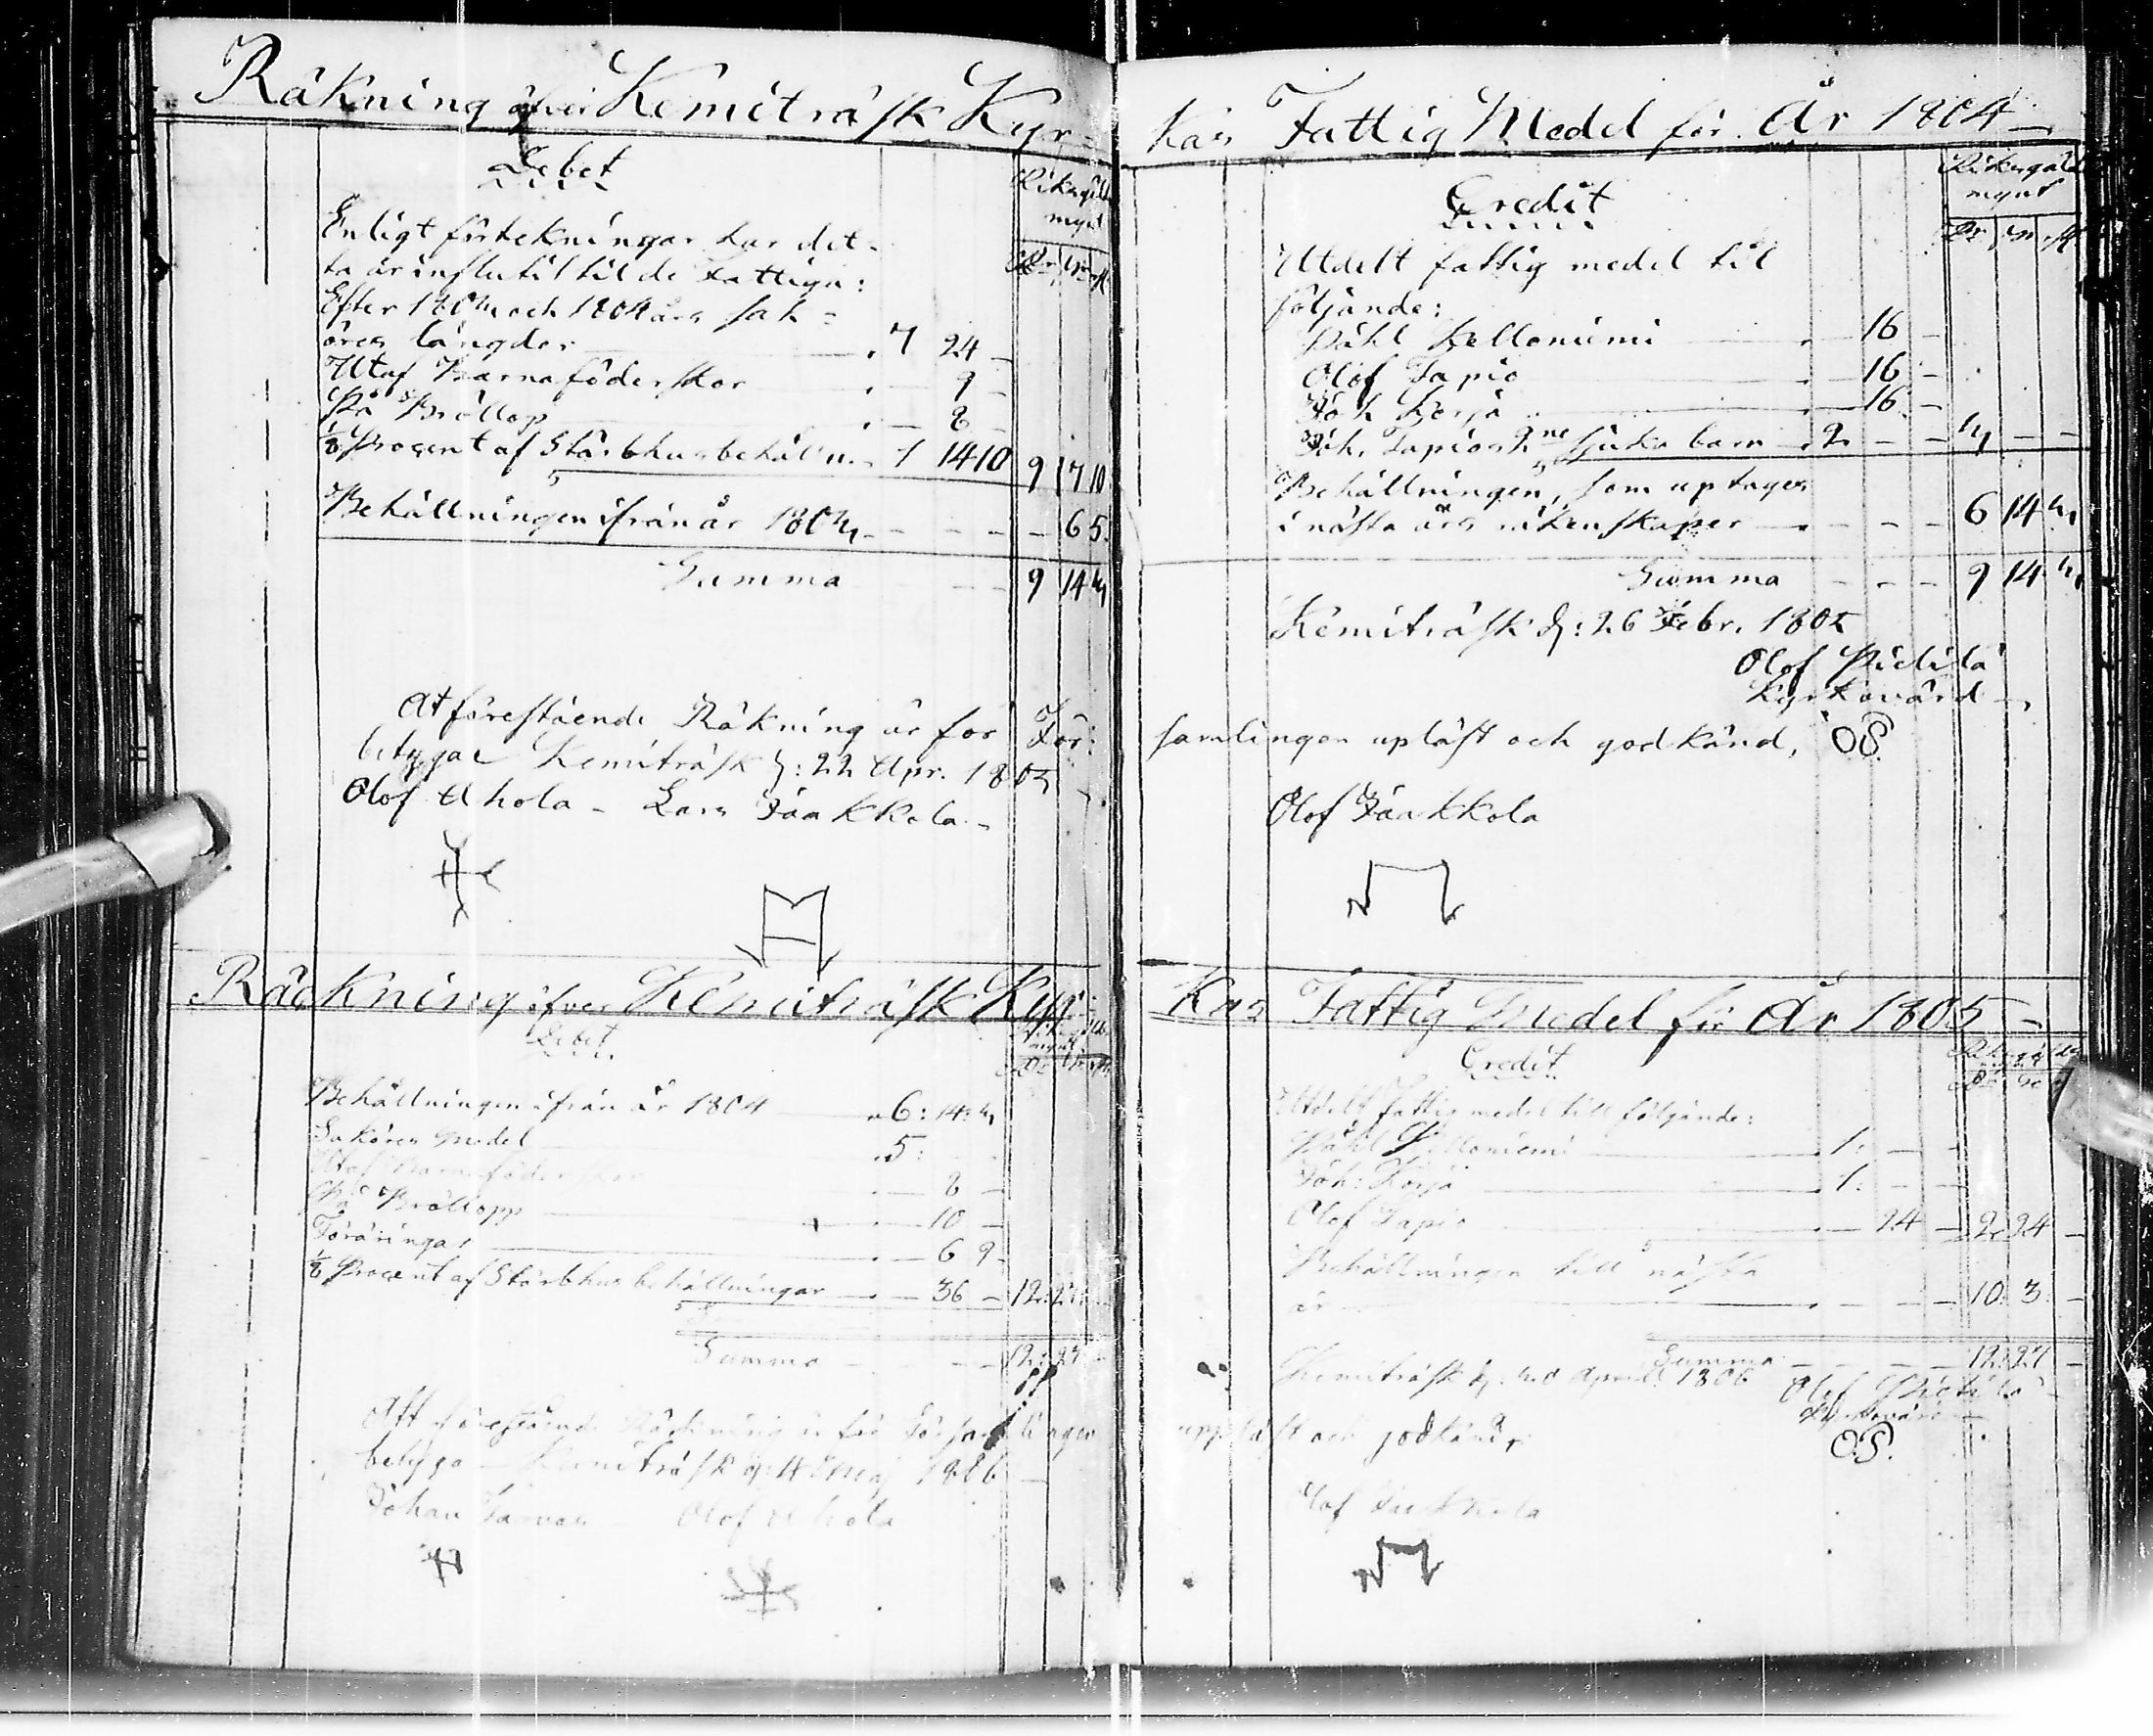 Räkning öfver Kemiträsk Kyr=
Debet
Riksgäld
mynt
Enligt förtekningar har det-
ta år influtit til de Fattiga:
Efter 1803 och 1804 års sak=
öres längder 7 24 -
Utaf Barnaföderskor - 9 -
På Bröllop - 8 -
1/8 Procent af Stärbhusbehåln. 1 14 10 9 7 10
Behållningen ifrån år 1803 - - - - 6 5.
Summa - - 9 14 3
At föreståendе Räkning är för För:
betygar Kemiträsk d: 22 Apr. 1805
Olof Ahola - Lars Jaakkola -
Räckning öfver Kemiträsk Kyr=
Debet
mynt
Behållningen ifrån år 1804 6: 14: 3
Saköres medel 5: - -
Utaf Barnaföderskor - 8 -
På Bröllopp - 10 -
Föräringar - 6 9 -
1/8 Procent af Stärbhus behållningar - 36 - 12: 27 -
Summa - - - 12: 27 -
Att föreståendе Räckning är för Församlingen
betyga Kemiträsk d: 4 Maj 1806 -
Johan Olof Ahola
kas Fattig Medel för År 1804 -
Credit
Riksgäld
mynt
Utdelt fattig medel til
följande:
Påhl Kelloniemi - 16 -
Olof Tapio - 16 -
Joh Korja - 16 -
Joh. Tapios 2ne sjuka barn 2 - - 3 - -
Behållningen, som uptages
i nästa års räkenskaper - - - 6 14 3
Summa - - - 9 14 3
Kemiträsk d: 26 Febr. 1805
Olof Pietilä
Kyrkovärd -
samlingen upläst och godkänd, OP.
Olof Jaakkola
Kas Fattig Medel för År 1805 -
Credit
Riksgälds
Utdelt Fattig medel till följande:
Påhl Kelloniemi 1: - -
Joh: Korja 1: - -
Olof Tapio - 24 - 2: 24 -
Behållningen till nästa
år - - - 10: 3: -
Summa - - - - 12: 27 -
Kemiträsk d. April 1806 Olof Pietilä
Kyrkovärd -
uppläst och godkänd, OP.
Olof Jaakkola